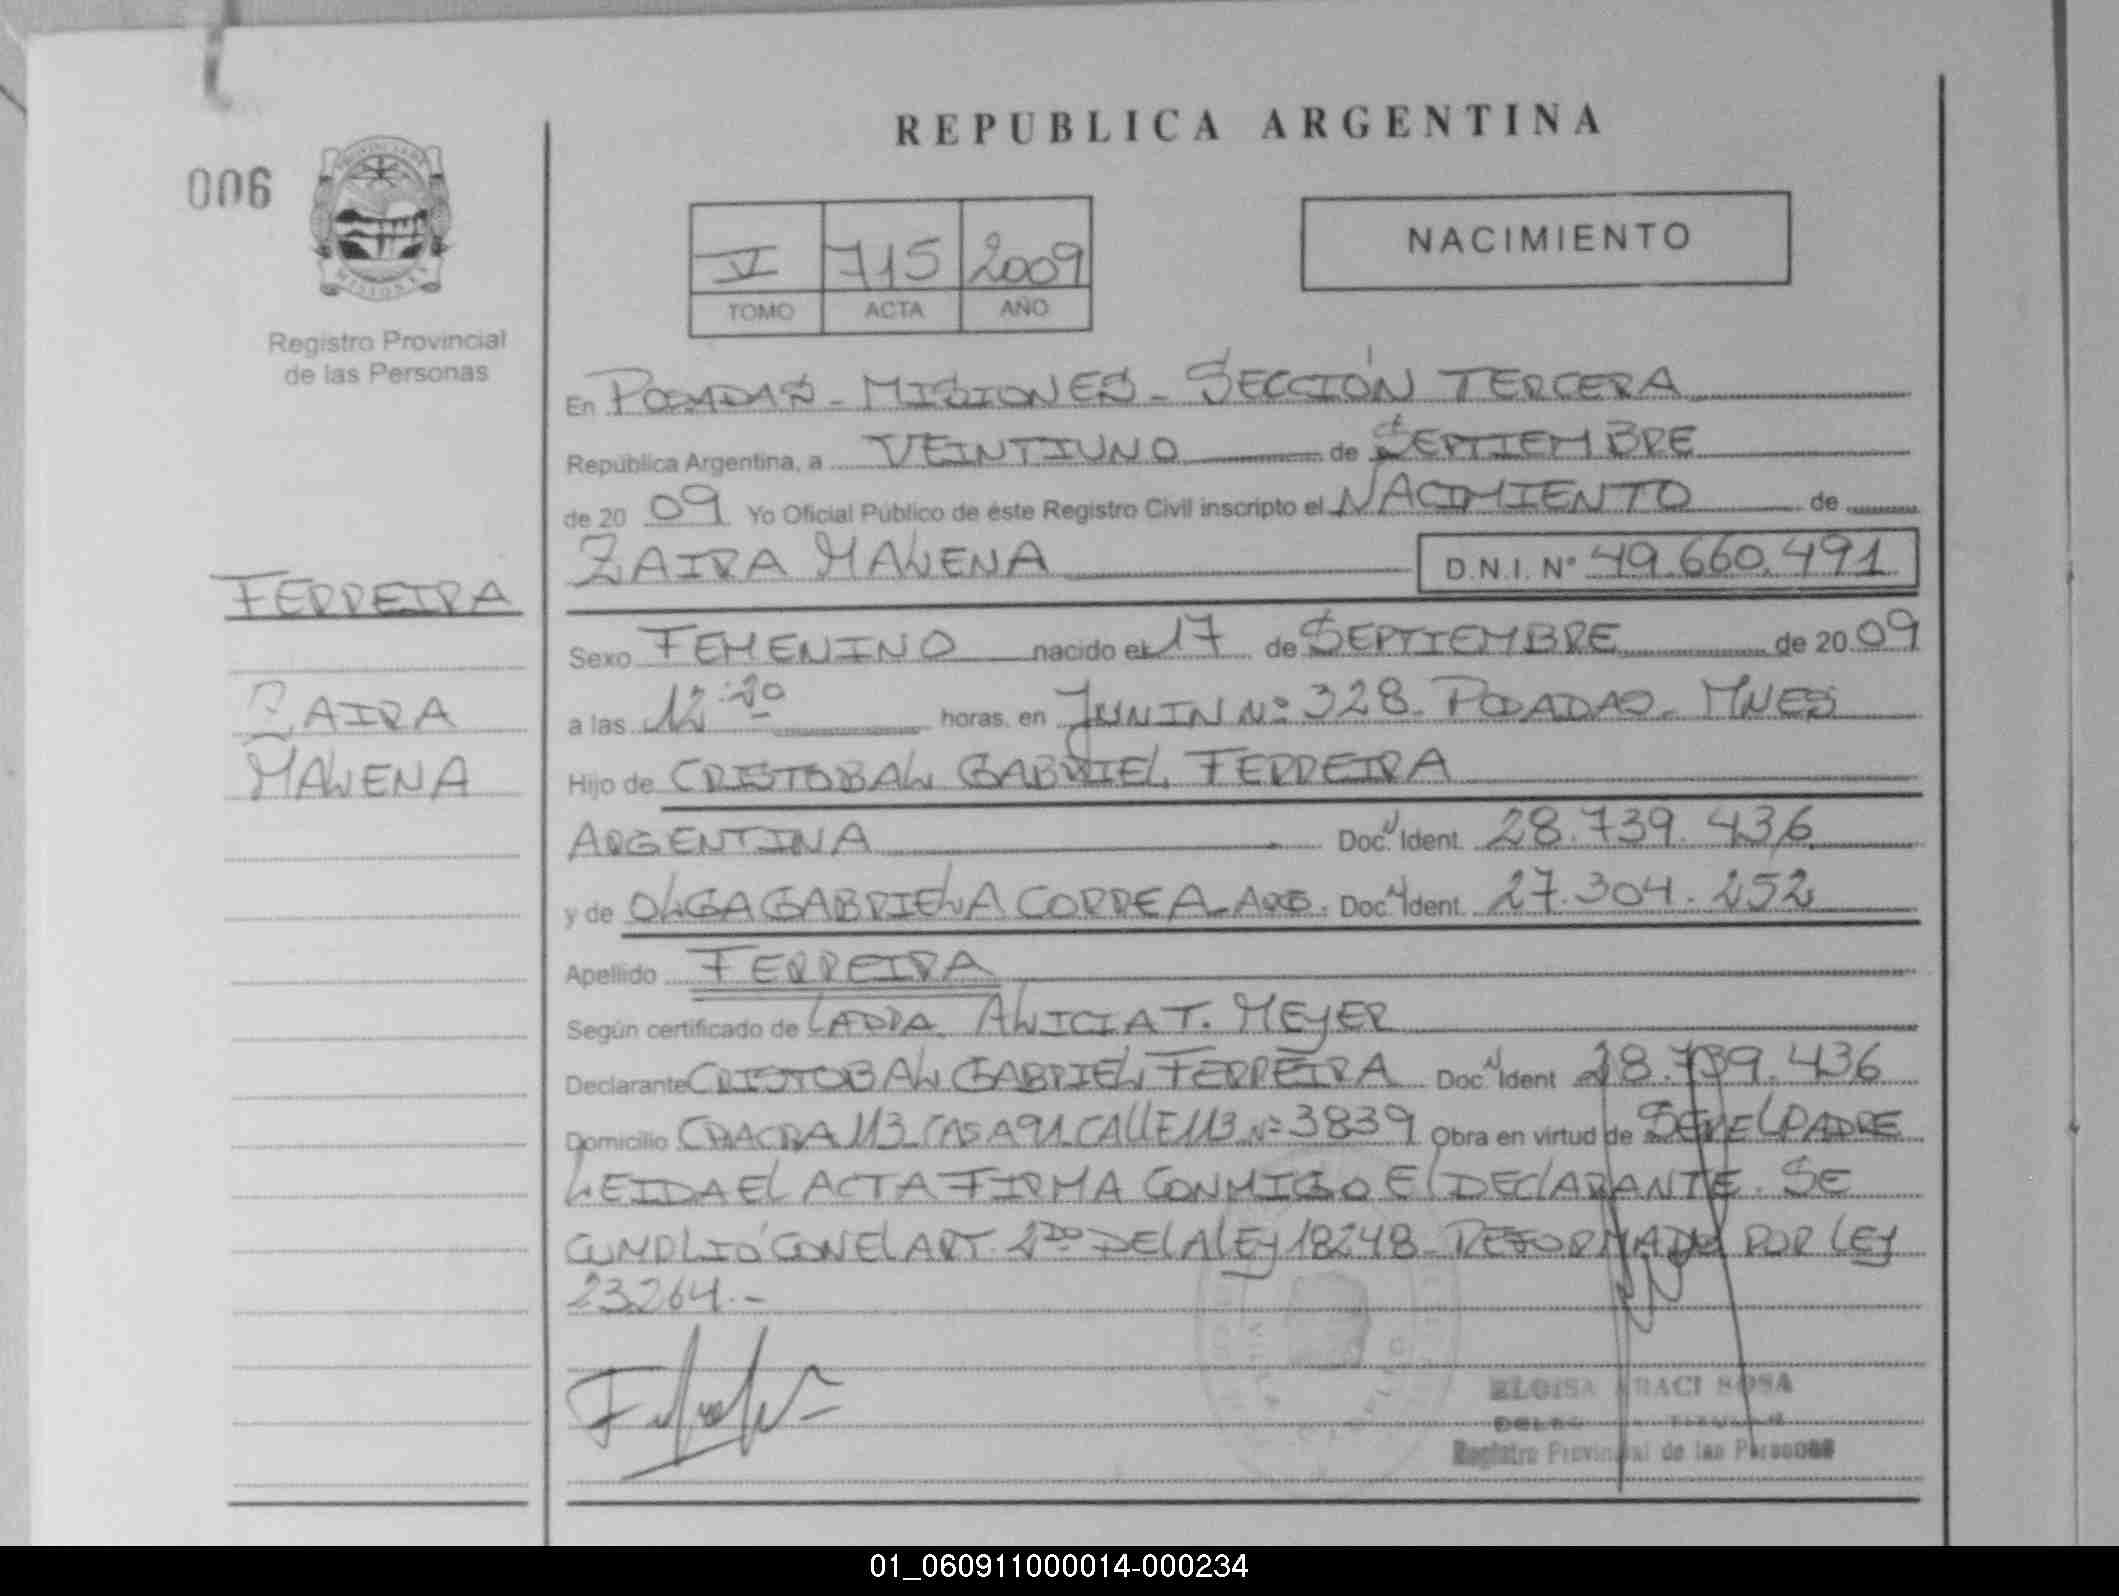 REPUBLICA ARGENTINA
006
PROVINCIA DE
MISIONES
Registro Provincial
de las Personas
V 715 2009
TOMO ACTA AÑO
NACIMIENTO
En POSADAS - MISIONES - SECCIÓN TERCERA
República Argentina, a VEINTIUNO de SEPTIEMBRE
de 20 09 Yo Oficial Público de éste Registro Civil inscripto el NACIMIENTO de
ZAIRA MALENA D.N.I. Nº 49.660.491
FERREIRA
ZAIRA
MALENA
Sexo FEMENINO nacido el 17 de SEPTIEMBRE de 20 09
a las 12:20 horas, en JUNIN Nº 328. POSADAS - MNES
Hijo de CRISTOBAL GABRIEL FERREIRA
ARGENTINA Doc. Ident. 28.739.436
y de OLGA GABRIELA CORREA - ARG. Doc. Ident. 27.304.252
Apellido FERREIRA
Según certificado de LA DRA. ALICIA T. MEYER
Declarante CRISTOBAL GABRIEL FERREIRA Doc. Ident 28.739.436
Domicilio CHACRA 113 CASA 91 CALLE 113 Nº 3839 Obra en virtud de SER EL PADRE
LEIDA EL ACTA FIRMA CONMIGO El DEClARANTE. SE
CUMPLIÓ CON El ART. 2DO DE lA lEy 18248 REFORMADO POR lEy
23264.-
ELOISA ARACI SOSA
Registro Provincial de las Personas
01_060911000014-000234